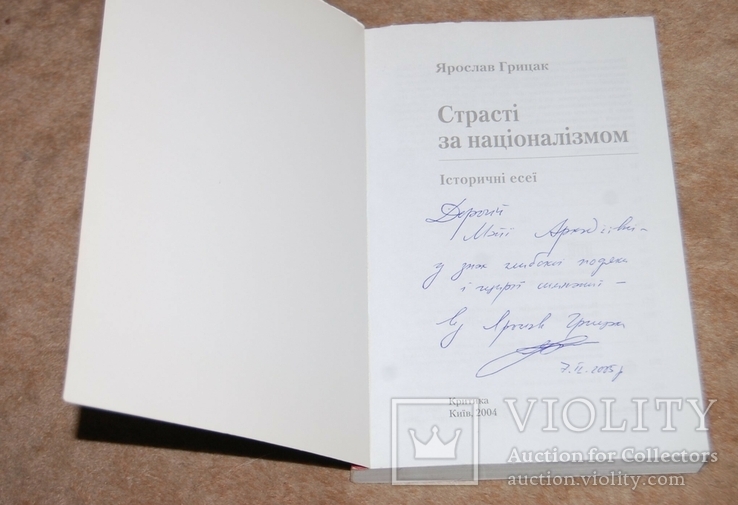 Ярослав Грицак
Страсті
за націоналізмом
Історичні есеї
Дорогій
Маї
у знак глибокої подяки
і щирої
Від Ярослава Грицака
2005 р
Критика
Київ, 2004
VIOLITY
Auction for Collectors
auction.violity.com